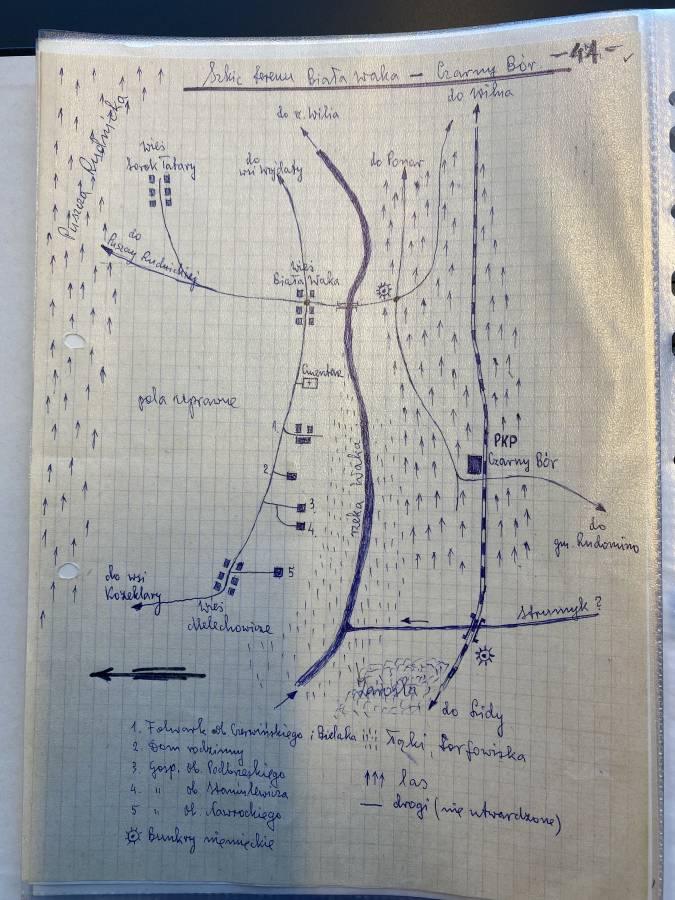 -44.-
Szkic terenu Biała Waka – Czarny Bór.
do Wilna
do rz. Wilia
Puszcza Rudnicka
wieś
Sorok Tatary
do
wsi Wojdaty
do Ponar
do
Puszczy Rudnickiej
wieś
Biała Waka
Cmentarz
pola uprawne
1.
2
3
4.
5
rzeka Waka
PKP
Czarny Bór
do
gm. Rudomino
do wsi
Kozeklary
wieś
Melechowicze
Strumyk ?
Zarośla
do Lidy
1. Folwark ob. Czerwińskiego i Bielaka
2. Dom rodzinny
3. Gosp. ob. Podbereskiego
4. " ob. Stanislewicza
5 " ob. Nawrockiego
Bunkry niemieckie
Łąki, torfowiska
las
— drogi (nie utwardzone)